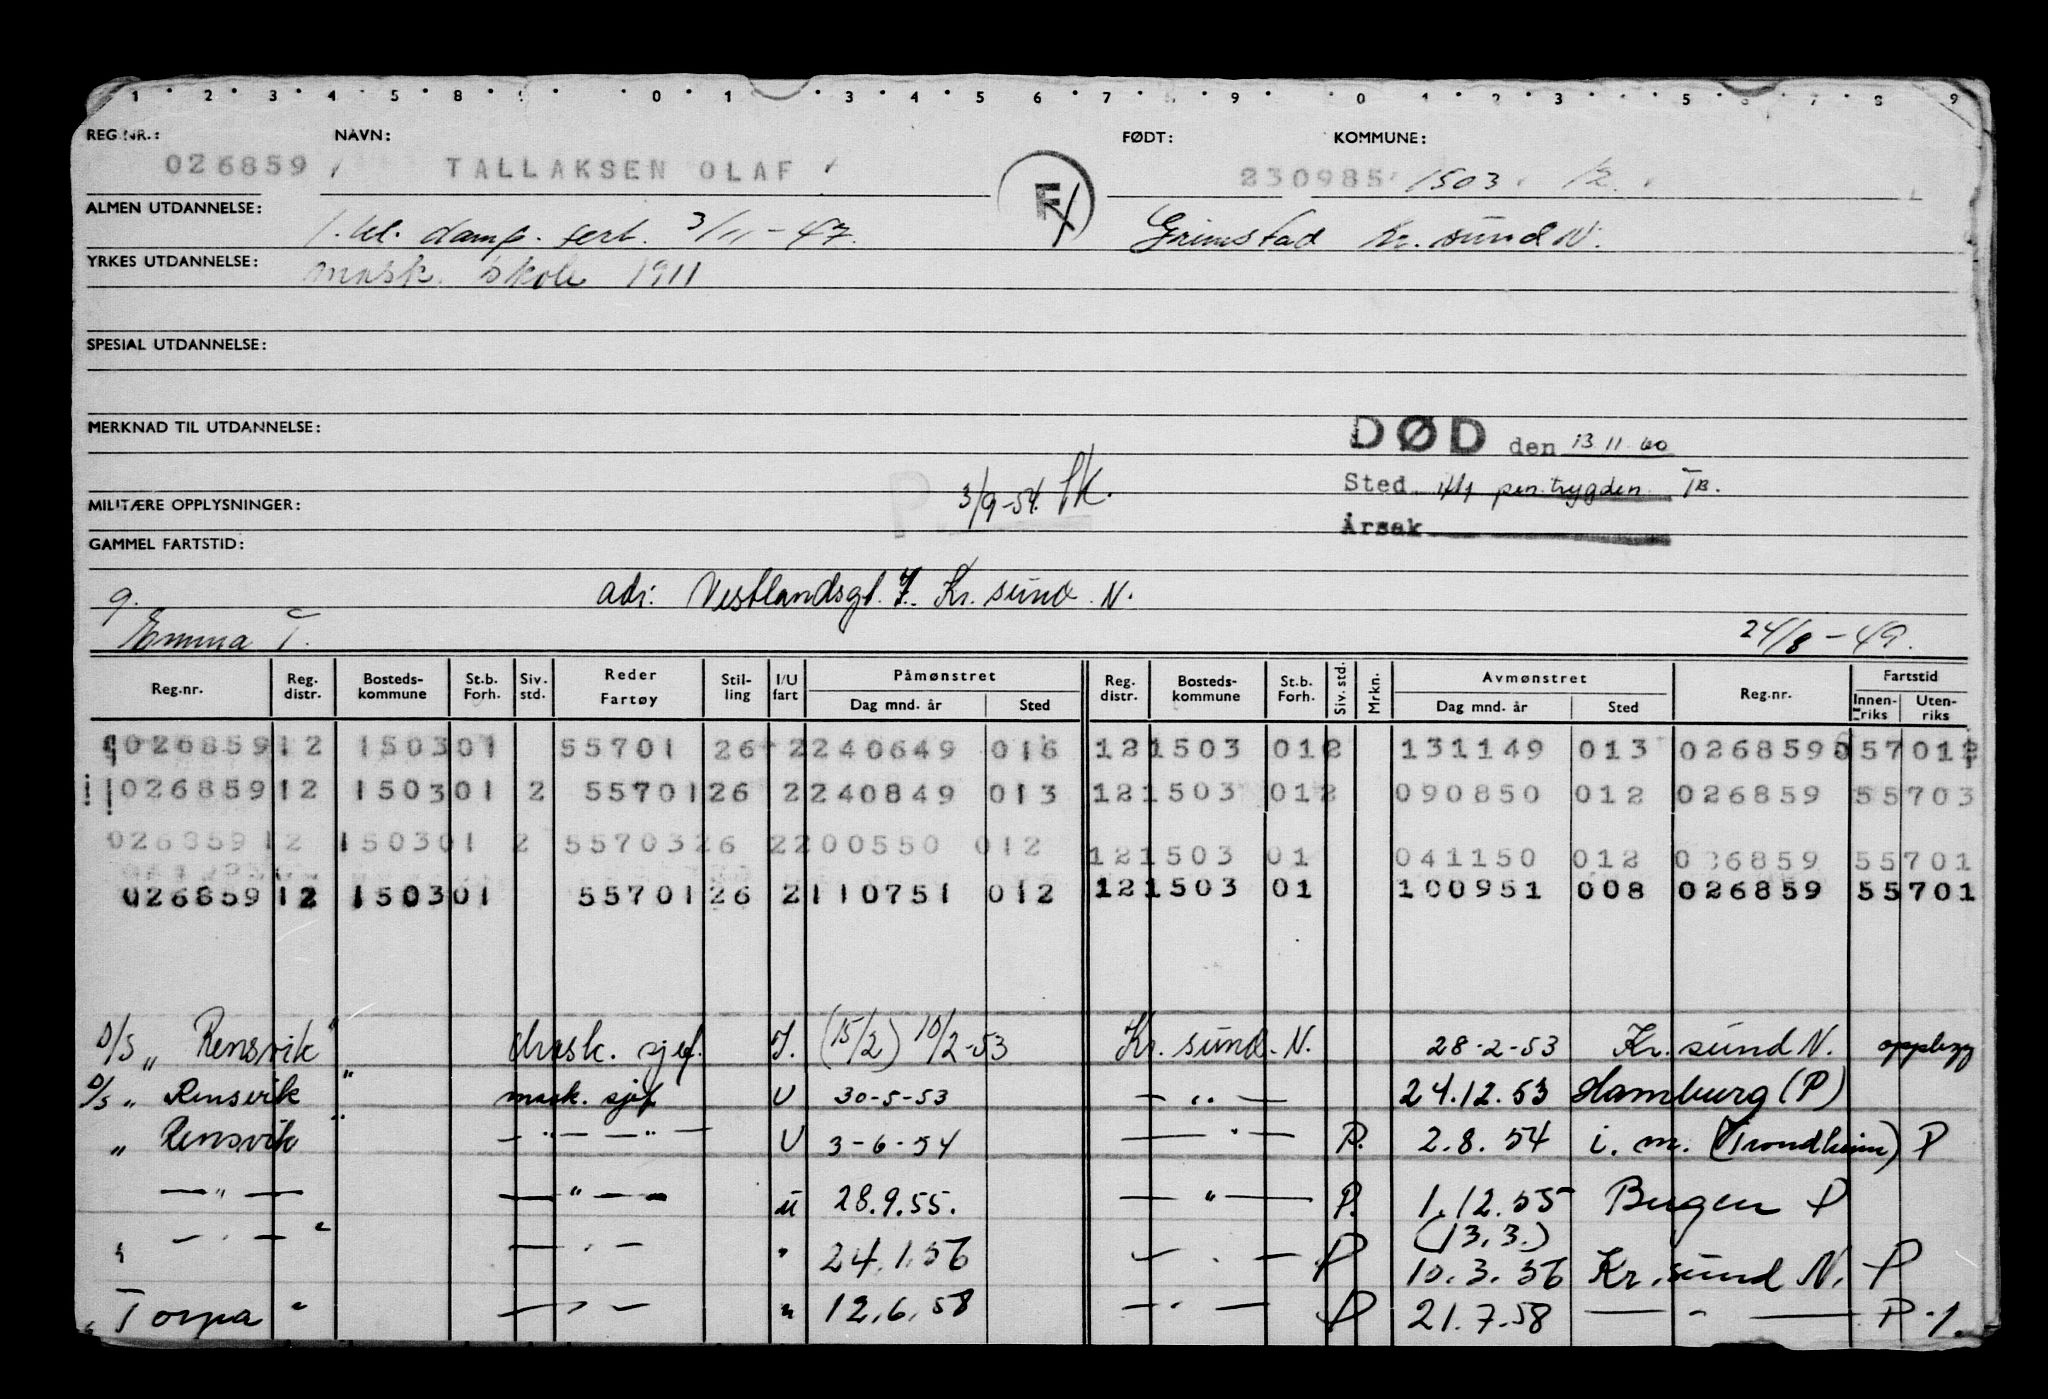 REG.NR.: NAVN: FØDT: KOMMUNE:
026859 TALLAKSEN OLAF F 230985 1503
ALMEN UTDANNELSE: 1. kl. damp. sert. 3/11-47. Grimstad Kr. sund N.
YRKES UTDANNELSE: mask. skole 1911
SPESIAL UTDANNELSE:
MERKNAD TIL UTDANNELSE:
DØD den 13 11 60
Sted iflg pen.trygden TB.
MILITÆRE OPPLYSNINGER: P. 3/9-54.
Årsak
GAMMEL FARTSTID:
g. adr. Vestlandsgt. 7. Kr. sund. N.
Emma T. 24/8-49.
Reg.nr. Reg. distr. Bosteds-kommune St.b. Forh. Siv. std. Reder Fartøy Stil-ling I/U fart Påmønstret Dag mnd. år Sted Reg. distr. Bosteds-kommune St.b. Forh. Siv. std. Mrkn. Avmønstret Dag mnd. år Sted Reg.nr. Fartstid Innen-riks Uten-riks
026859 12 1503 01 55701 26 2 240649 016 12 1503 01 2 131149 013 026859 57012
026859 12 1503 01 2 55701 26 2 240849 013 12 1503 01 2 090850 012 026859 55703
026859 12 1503 01 2 55703 26 2 200550 012 12 1503 01 041150 012 026859 55701
026859 12 1503 01 55701 26 2 110751 012 12 1503 01 100951 008 026859 55701
D/S „ Rensvik " mask. sjef. I. (15/2) 10/2-53 Kr. sund. N. 28-2-53 Kr. sund N. opplegg
D/S „ Rensvik " mask. sjef U 30-5-53 — „ — 24.12.53 Hamburg (P)
„ Rensvik " — " — — " — U 3-6-54 — " — P. 2.8.54 i. m. (Trondheim) P
— " — — " — — u 28.9.55. — " — P. 1.12.55 Bergen P
(13.3.)
„ — " — " — " — " 24.1.56 — " — P 10.3.56 Kr. sund N. P
„ Torpa " — " — " 12.6.58 — " — P 21.7.58 — " — P